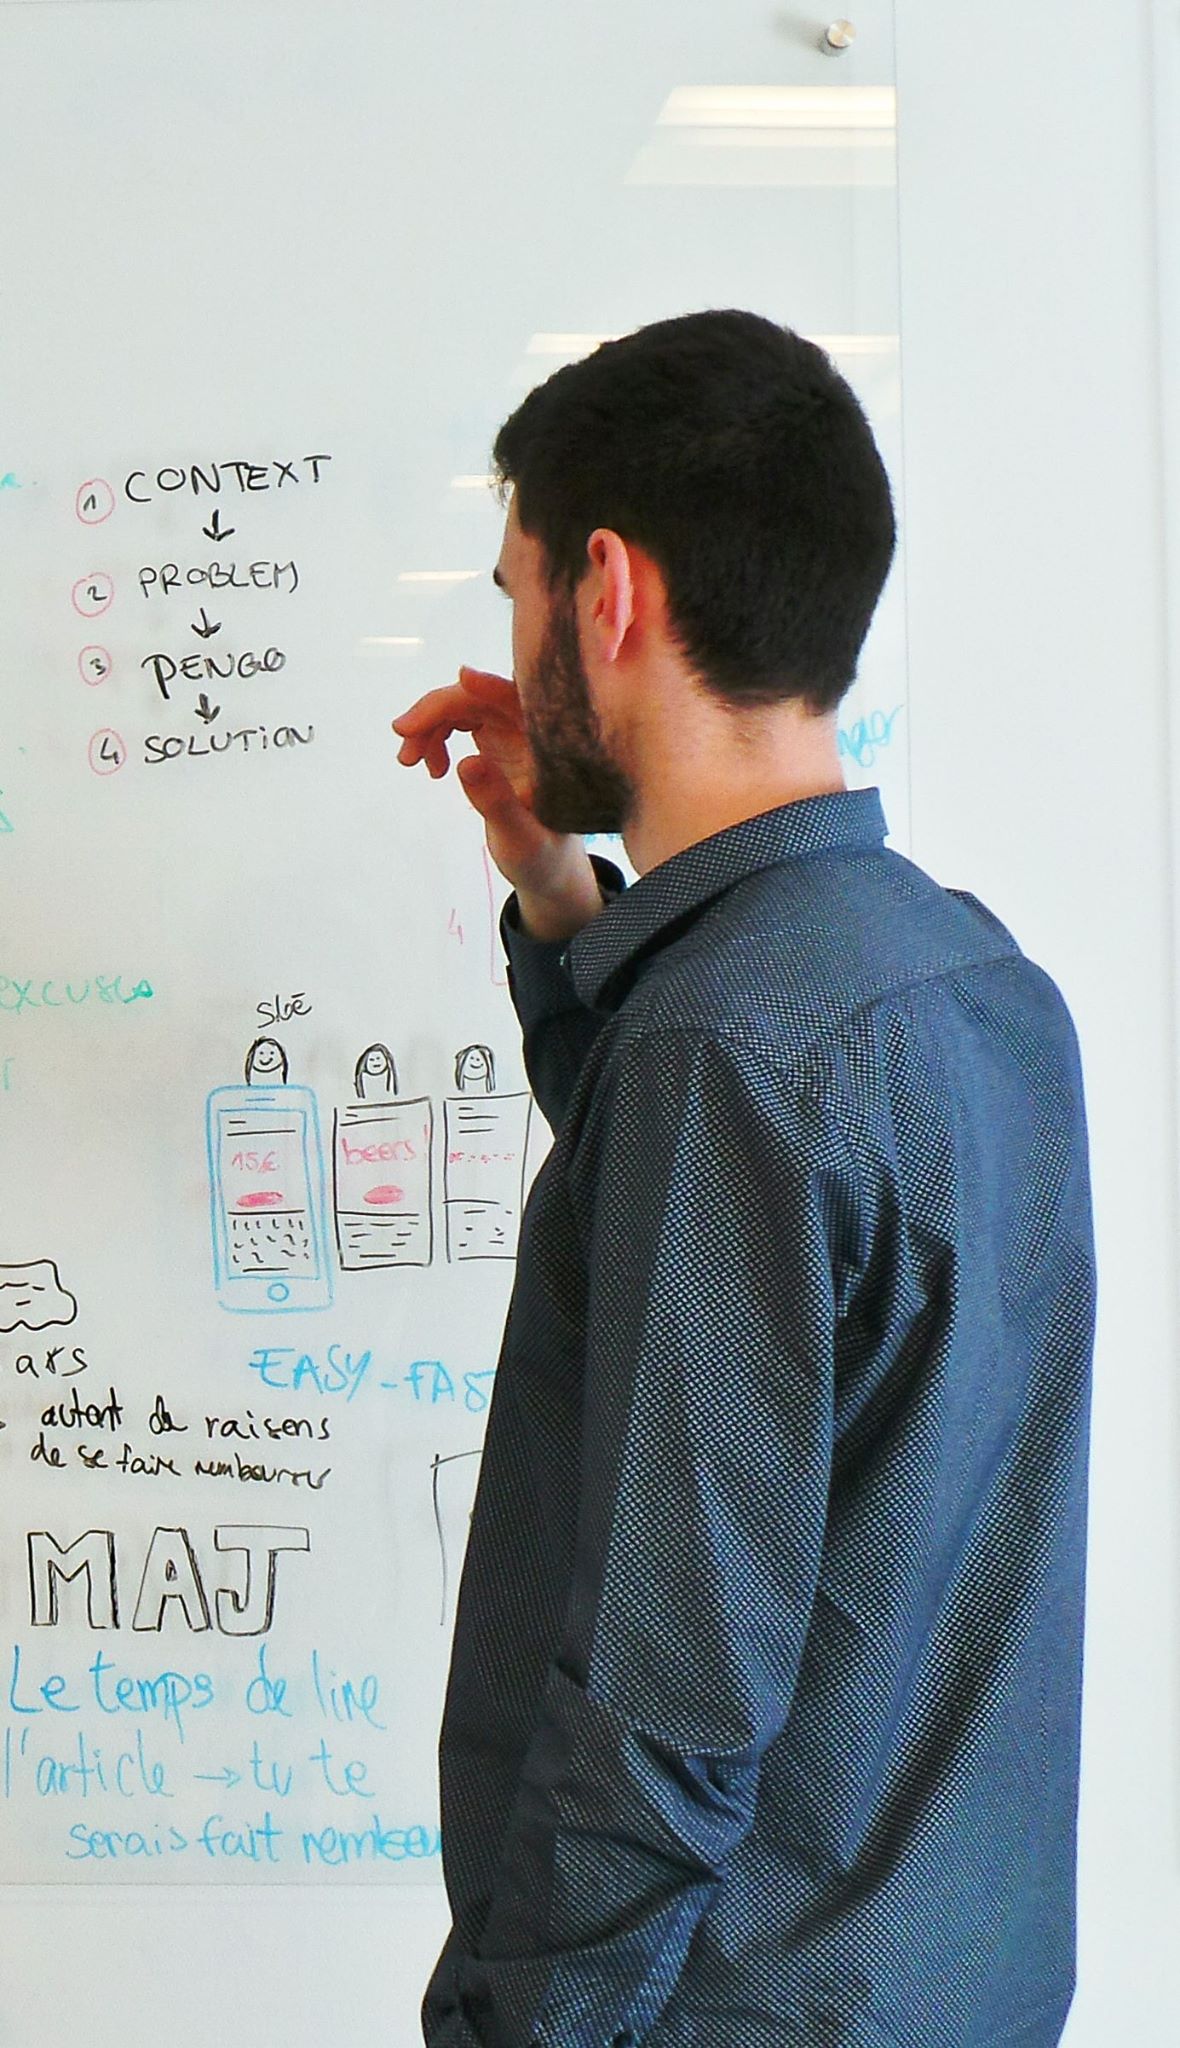 1 CONTEXT
2 PROBLEM
3 PENGO
4 SOLUTION
4
15€
beers!
EASY-FAS
autant de raisons
de se faire rembourser
MAJ
Le temps de lire
l'article → tu te
serais fait rembou